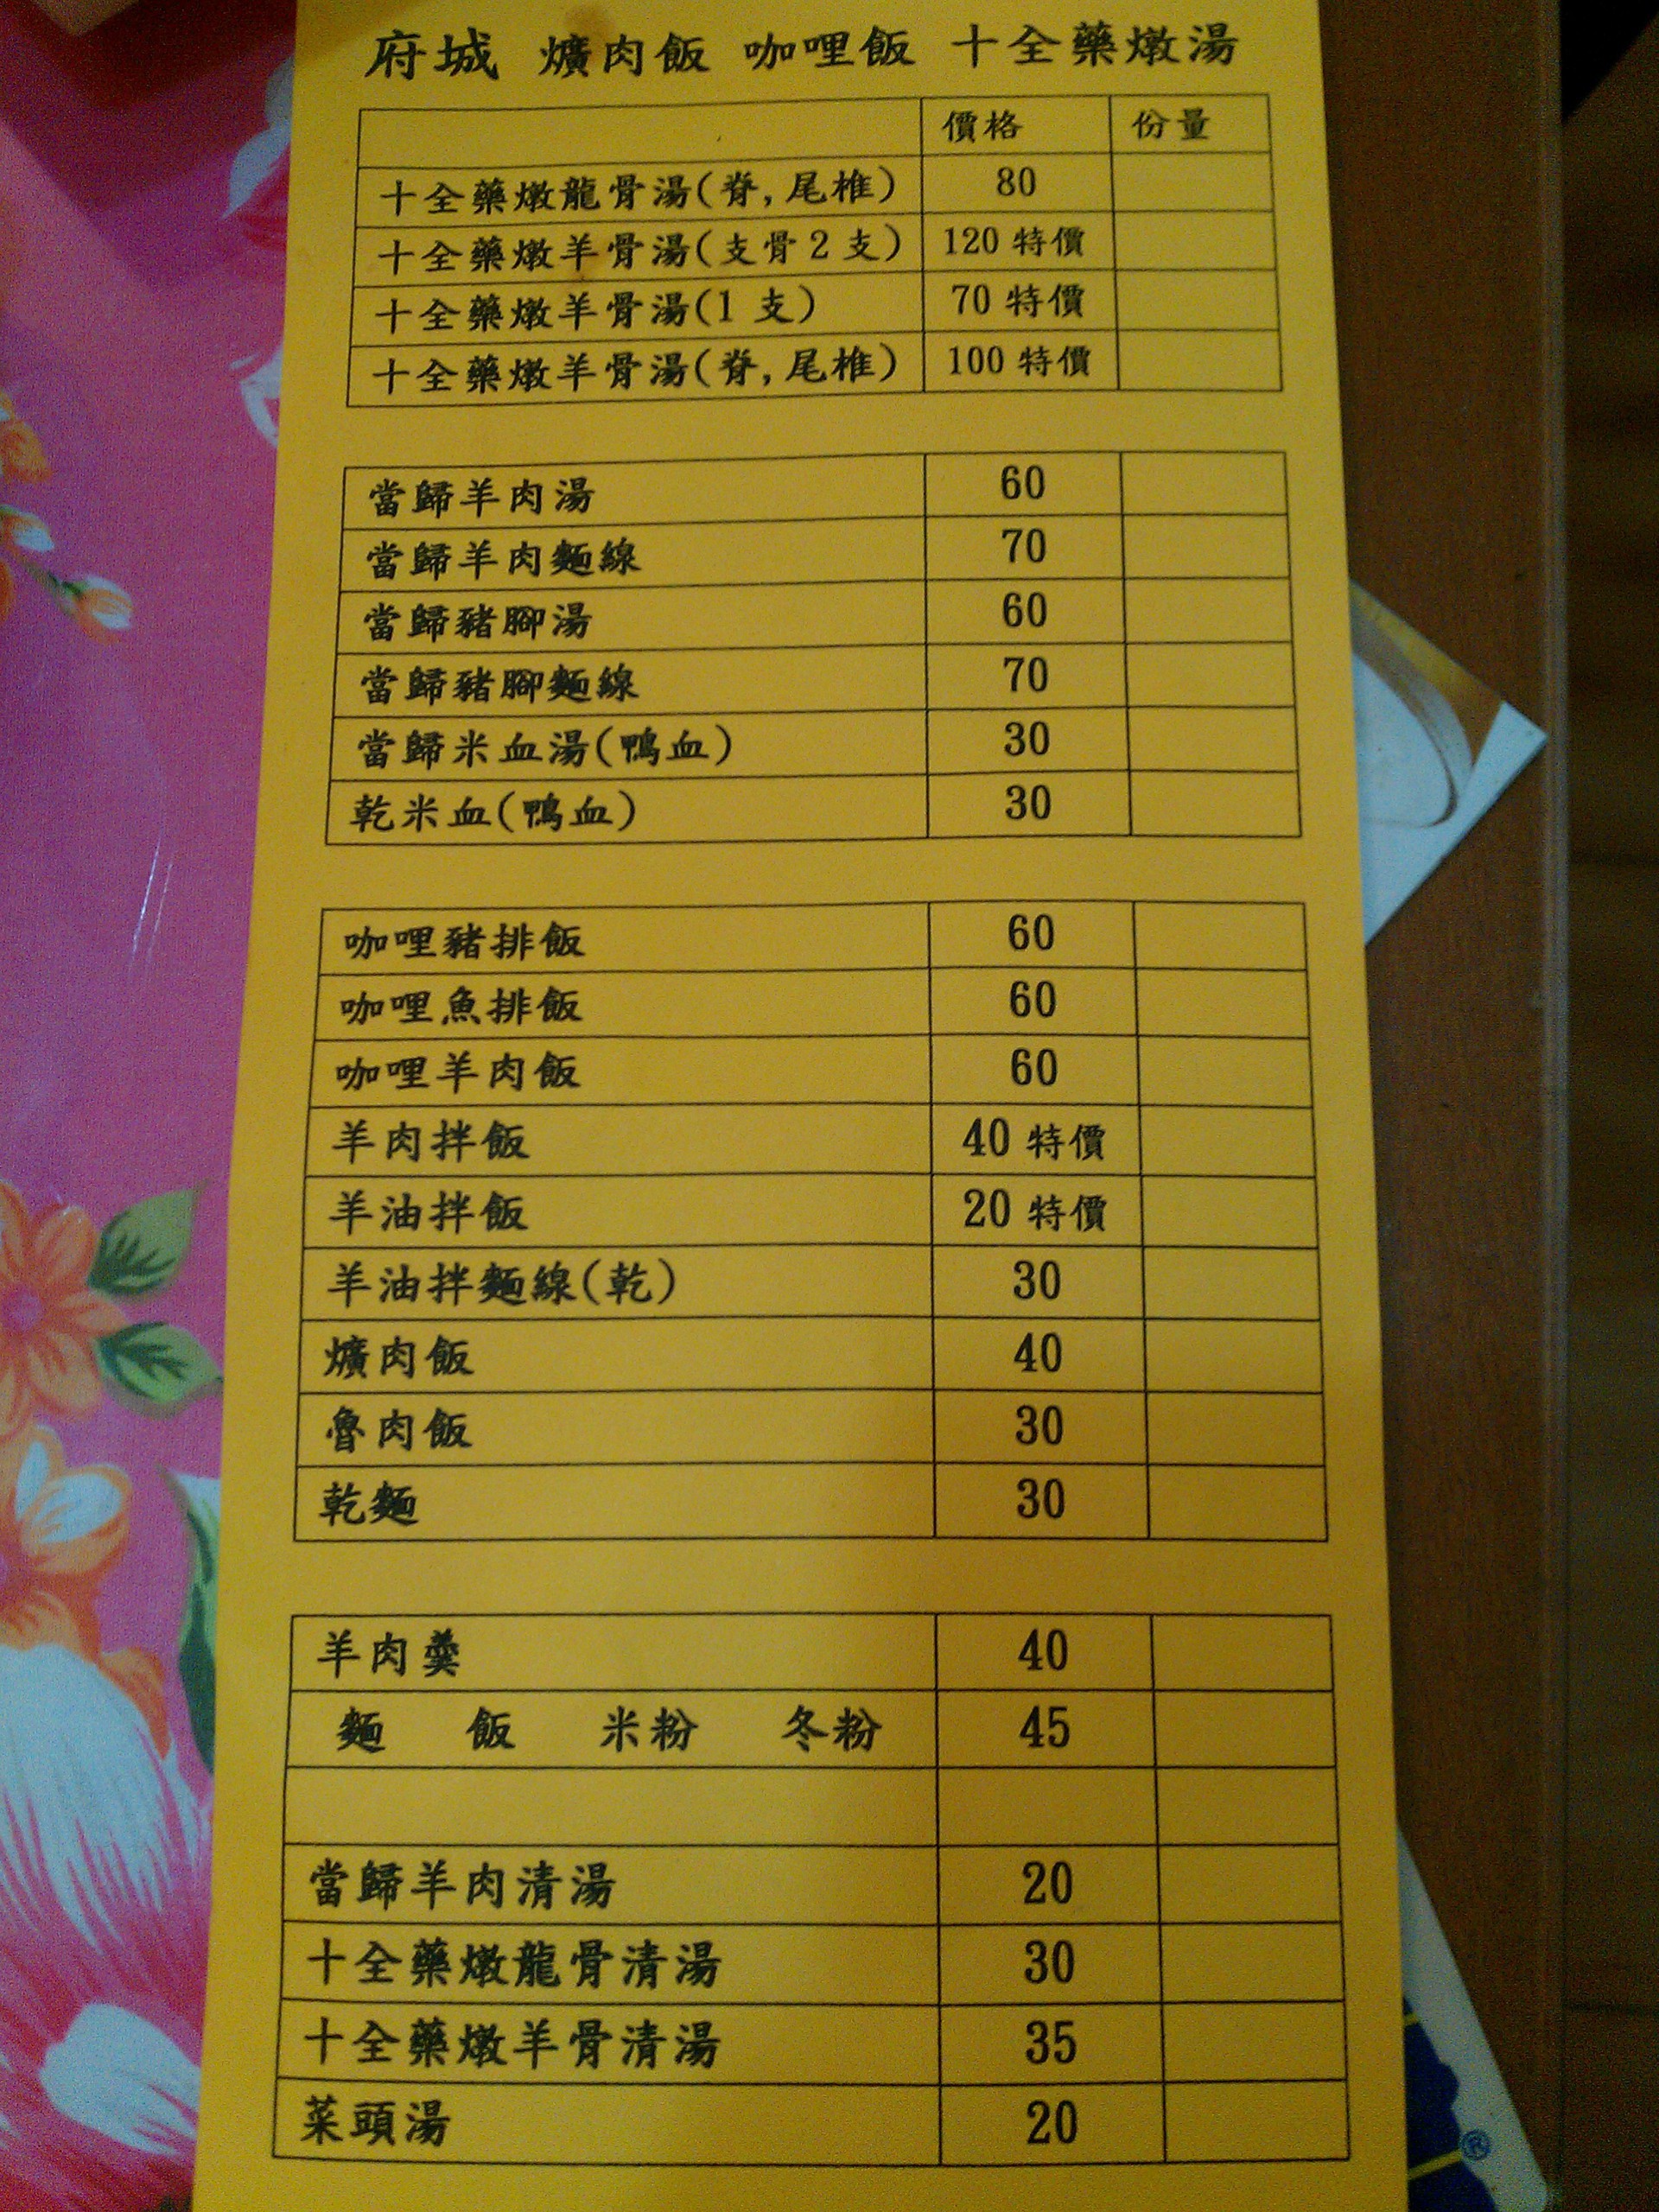 府城 爌肉飯 咖哩飯 十全藥燉湯
價格 份量
十全藥燉龍骨湯(脊,尾椎) 80
十全藥燉羊骨湯(支骨2支) 120 特價
十全藥燉羊骨湯(1支) 70 特價
十全藥燉羊骨湯(脊,尾椎) 100 特價
當歸羊肉湯 60
當歸羊肉麵線 70
當歸豬腳湯 60
當歸豬腳麵線 70
當歸米血湯(鴨血) 30
乾米血(鴨血) 30
咖哩豬排飯 60
咖哩魚排飯 60
咖哩羊肉飯 60
羊肉拌飯 40 特價
羊油拌飯 20 特價
羊油拌麵線(乾) 30
爌肉飯 40
魯肉飯 30
乾麵 30
羊肉羹 40
麵 飯 米粉 冬粉 45
當歸羊肉清湯 20
十全藥燉龍骨清湯 30
十全藥燉羊骨清湯 35
菜頭湯 20
®